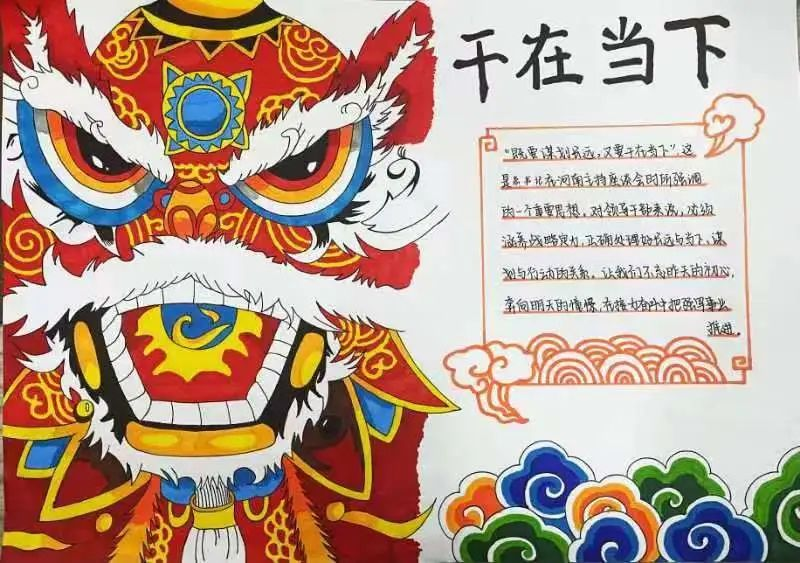 干在当下
“既要谋划长远，又要干在当下”，这
是总书记在河南主持座谈会时所强调
的一个重要思想，对领导干部来说，必须
涵养战略定力，正确处理好长远与当下、谋
划与行动的关系，让我们不忘昨天的初心，
向明天的憧憬，在接力奋斗中把强军事业
推进。